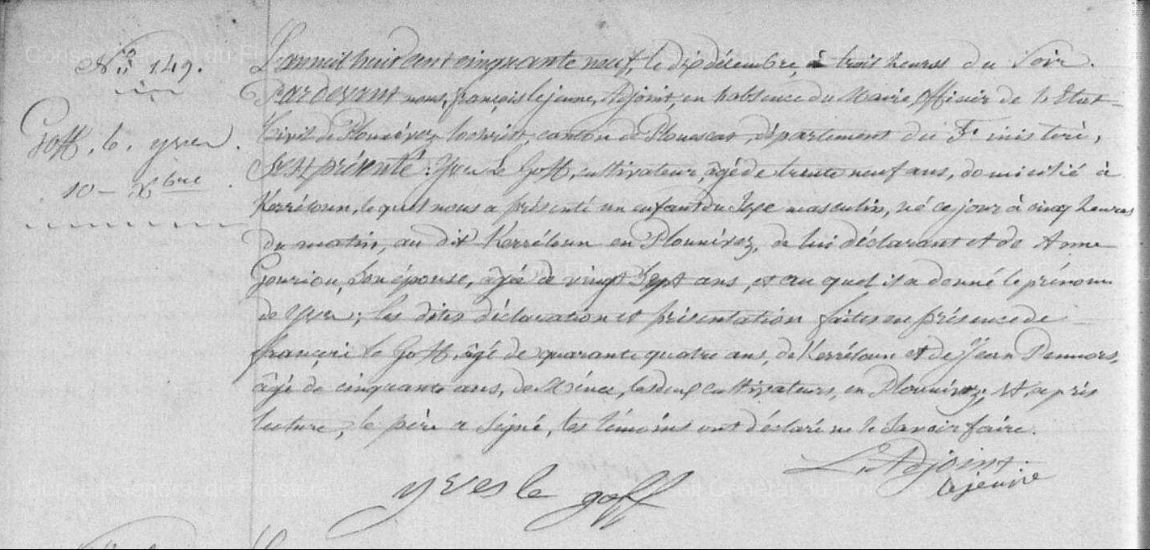 N° 149.
Goff, le, yves.
10 - Xbre.
L'an mil huit cent cinquante neuf, le dix décembre, à trois heures du Soir.
Pardevant nous, françois lejeune, Adjoint, en l'absence du Maire, Officier de l'Etat-
Civil de Plounévez-lochrist, canton de Plouescat, département du Finistère,
S'est présenté: Yves Le Goff, cultivateur, âgé de trente neuf ans, domicilié à
Kerréloun, lequel nous a présenté un enfant du Sexe masculin, né ce jour à cinq heures
du matin, au dit Kerréloun en Plounévez, de lui déclarant et de Anne
Gouriou, Son épouse, âgée de vingt Sept ans, et au quel il a donné le prénom
de Yves; les dites déclaration et présentation faites en présence de
françois Le Goff, âgé de quarante quatre ans, de Kerréloun et de Jean
âgé de cinquante ans, de les deux cultivateurs, en Plounévez, et après
lecture, le père a Signé, les témoins ont déclaré ne le Savoir faire.
L'Adjoint
lejeune
yves le goff
Conseil général du Finistère